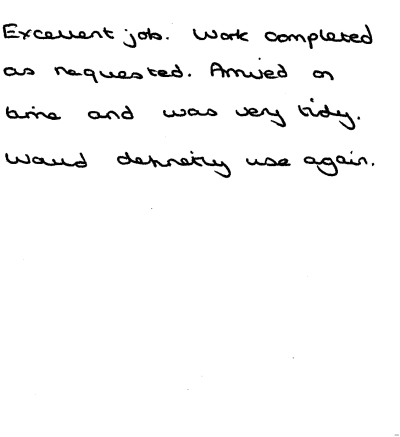 Excellent job. Work completed
as requested. Arrived on
time and was very tidy.
Would definitely use again.